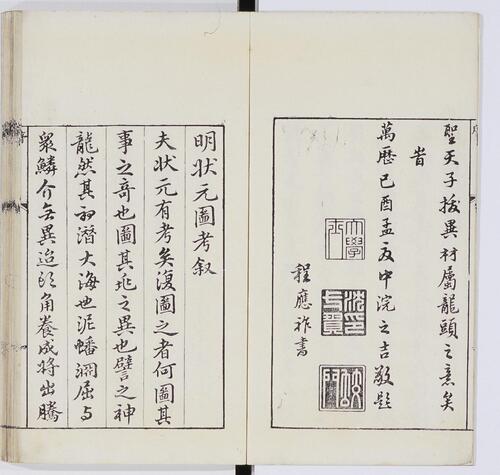 聖天子拔異材屬龍頭之意矣
旹
萬歷己酉孟夏中浣之吉敬題
程應祚書
明狀元圖考叙
夫狀元有考矣復圖之者何圖其
事之奇也圖其兆之異也譬之神
龍然其初潛大海也泥蟠淵屈与
衆鱗介无異迨頭角養成將出騰